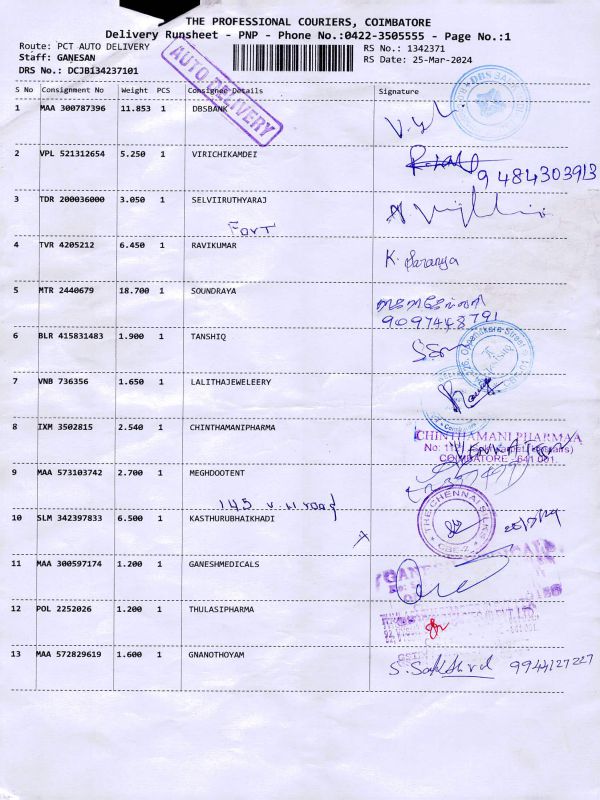 THE PROFESSIONAL COURIERS, COIMBATORE
Delivery Runsheet - PNP - Phone No.:0422-3505555 - Page No.:1
Route: PCT AUTO DELIVERY RS No.: 1342371
Staff: GANESAN RS Date: 25-Mar-2024
DRS No.: DCJB134237101
AUTO DELIVERY
S No Consignment No Weight PCS Consignee Details Signature
1 MAA 300787396 11.853 1 DBSBANK
2 VPL 521312654 5.250 1 VIRICHIKAMDEI
9484303913
3 TDR 200036000 3.050 1 SELVIIRUTHYARAJ
Fort
4 TVR 4205212 6.450 1 RAVIKUMAR K. Saranya
5 MTR 2440679 18.700 1 SOUNDRAYA
9097448791
6 BLR 415831483 1.900 1 TANSHIQ
7 VNB 736356 1.650 1 LALITHAJEWELEERY
8 IXM 3502815 2.540 1 CHINTHAMANIPHARMA
CHINTHAMANI PHARMAA
COIMBATORE - 641 001.
9 MAA 573103742 2.700 1 MEGHDOOTENT
145
10 SLM 342397833 6.500 1 KASTHURUBHAIKHADI
THE CHENNAI SILKS
11 MAA 300597174 1.200 1 GANESHMEDICALS
12 POL 2252026 1.200 1 THULASIPHARMA
13 MAA 572829619 1.600 1 GNANOTHOYAM
9944127227